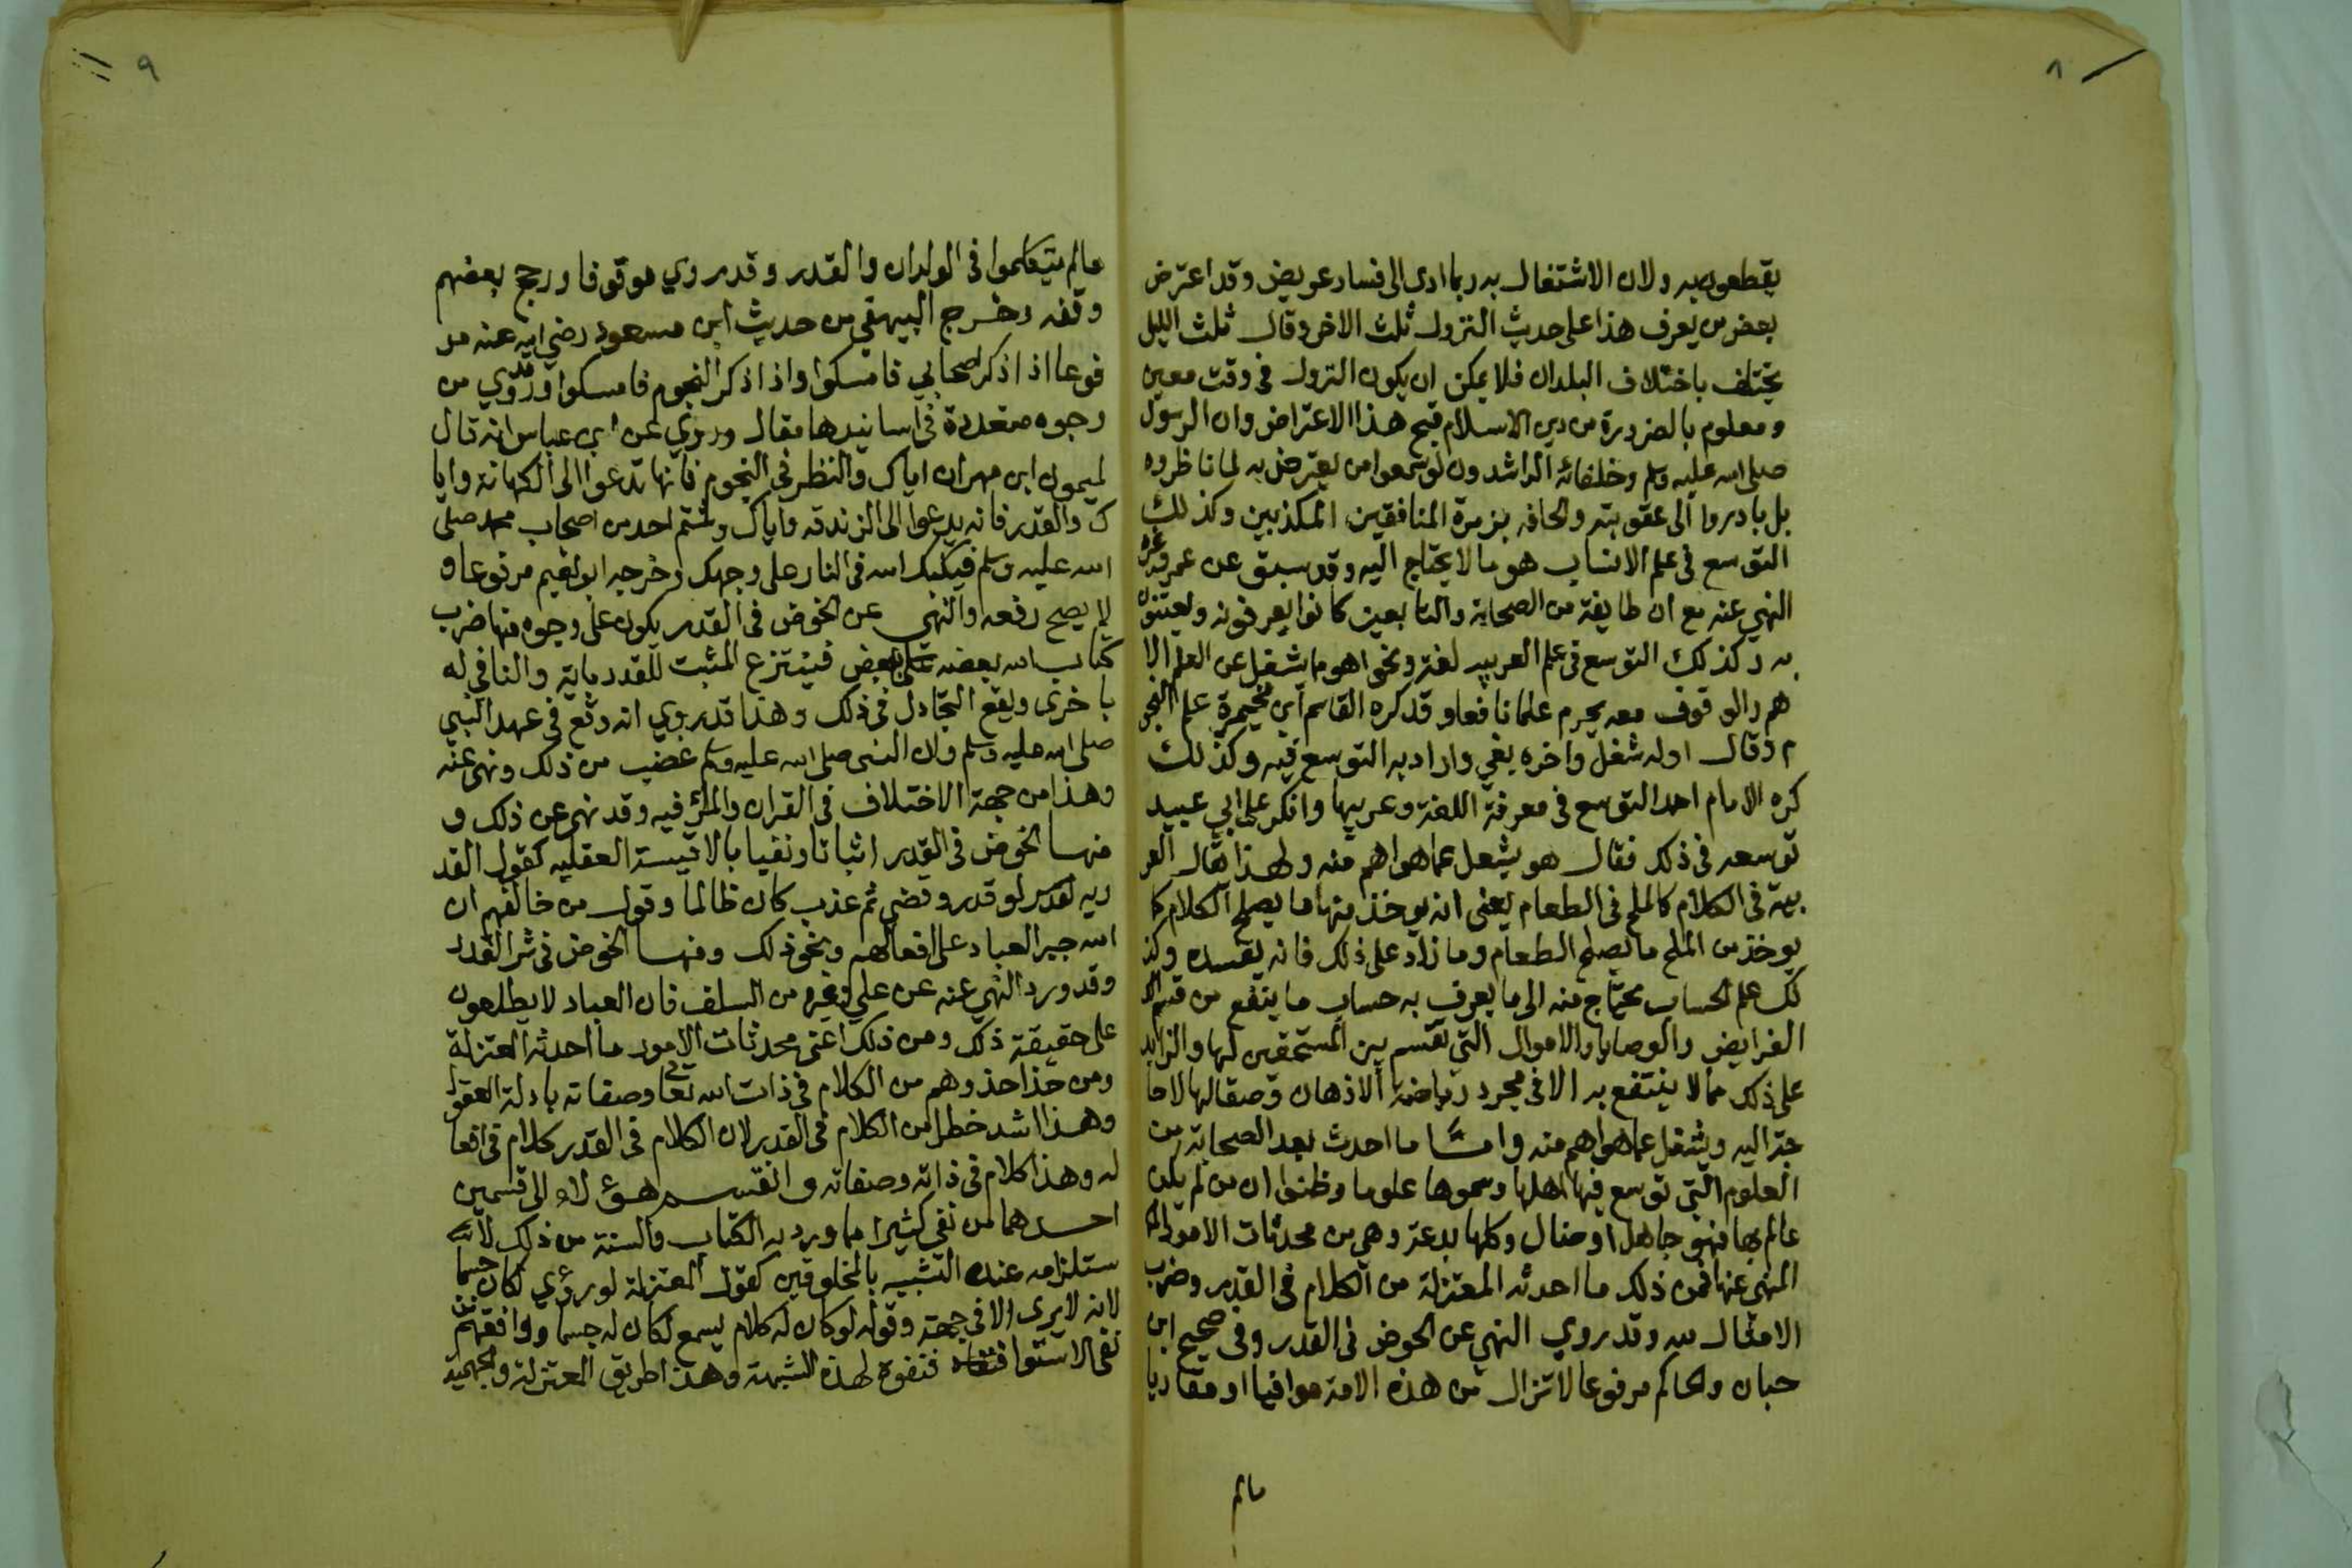 ٨
يقطعون به ولان الاشتغال به ربما ادى الى فساد عريض وقد اعترض
بعض من يعرف هذا على حديث النزول ثلث الاخر وقال ثلث الليل
يختلف باختلاف البلدان فلا يمكن ان يكون النزول فى وقت معين
ومعلوم بالضرورة من دين الاسلام قبح هذا الاعتراض وان الرسول
صلى الله عليه وسلم وخلفائه الراشدون لو سمعوا من يعترض به لما ناظروه
بل بادروا الى عقوبته والحاقه بزمرة المنافقين المكذبين وكذلك
التوسع فى علم الانساب هو مما لا يحتاج اليه وقد سبق عن عمر وغيره
النهي عنه مع ان طايفة من الصحابة والتابعين كانوا يعرفونه ويعتنون
به وكذلك التوسع فى علم العربيه لغة ونحوا هو مما يشغل عن العلم الا
هم والوقوف معه يحرم علما نافعا وقد كره القاسم ابن مخيمرة علم النجو
م وقال اوله شغل واخره بغي واراد به التوسع فيه وكذلك
كره الامام احمد التوسع فى معرفة اللغة وغريبها وانكر على ابي عبيد
توسعه فى ذلك فقال هو يشغل عما هو اهم منه ولهذا يقال العر
بية فى الكلام كالملح فى الطعام يعنى انه يوخذ منها ما يصلح الكلام كما
يوخذ من الملح ما يصلح الطعام وما زاد على ذلك فانه يفسده وكذ
لك علم الحساب يحتاج منه الى ما يعرف به حساب ما ينفع من قسم
الفرايض والوصايا والاموال التي تقسم بين المستحقين لها والزايد
على ذلك مما لا ينتفع به الا فى مجرد رياضة الاذهان وصقالها لا حا
جة اليه ويشغل عما هو اهم منه وامــا ما احدث بعد الصحابة من
العلوم التى توسع فيها اهلها وسموها علوما وظنوا ان من لم يكن
عالم بها فهو جاهل او ضال وكلها بدعة وهي من محدثات الامور
المنهي عنها فمن ذلك ما احدثه المعتزلة من الكلام فى القدر وضرب
الامثال لله وقد روي النهي عن الخوض فى القدر وفى صحيح ابن
حبان والحاكم مرفوعا لا تزال من هذه الامة موافيا او مقاربا
مالم
٩
مالم يتكلموا فى الولدان والقدر وقد روي موقوفا ورجح بعضهم
وقفه وخــرج البيهقي من حديث ابن مسعود رضي الله عنه مر
فوعا اذا ذكر اصحابي فامسكوا واذا ذكر النجوم فامسكوا وقد روي من
وجوه متعددة فى اسانيدها مقال وروي عن ابن عباس انه قال
لميمون ابن مهران اياك والنظر في النجوم فانها تدعوا الى الكهانة وايا
ك والقدر فانه يدعوا الى الزندقه واياك وشتم احد من اصحاب محمد صلى
الله عليه وسلم فيكبك الله فى النار على وجهك وخرجه ابو نعيم مرفوعا و
لا يصح رفعه والنهي عن الخوض فى القدر يكون على وجوه منها ضرب
كتاب الله بعضه ببعض فينتزع المثبت للقدر باية والنافي له
باخرى ويقع التجادل فى ذلك وهذا قد روي انه وقع فى عهد النبي
صلى الله عليه وسلم وان النبى صلى الله عليه وسلم غضب من ذلك ونهى عنه
وهذا من جهة الاختلاف فى القران والمرا فيه وقد نهى عن ذلك و
منهــا الخوض فى القدر اثباتا ونفيا بالاقيسة العقليه كقول القد
ريه لو قدر وقضي ثم عذب كان ظالما وقول من خالفهم ان
الله جبر العباد على افعالهم ونحو ذلك ومنهــا الخوض فى سر القدر
وقد ورد النهي عنه عن علي وغيره من السلف فان العباد لا يطلعون
على حقيقة ذلك ومن ذلك اعنى محدثات الامور ما احدثه المعتزلة
ومن حذا حذوهم من الكلام فى ذات الله تعالى وصفاته بادلة العقول
وهــذا اشد خطرا من الكلام فى القدر لان الكلام فى القدر كلام فى افعا
له وهذا كلام فى ذاته وصفاته وانقســم هــؤلاء الى قسمين
احــدهما من نفى كثيرا مما ورد به الكتاب والسنة من ذلك لا
ستلزامه عنده التشبيه بالمخلوقين كقول المعتزلة لو رؤي لكان جسما
لانه لا يرى الا فى جهة وقوله لو كان له كلام يسمع لكان له جسما ووافقهم من
نفى الاستوا فنفوه لهذه الشبهة وهذا طريق المعتزلة والجهمية